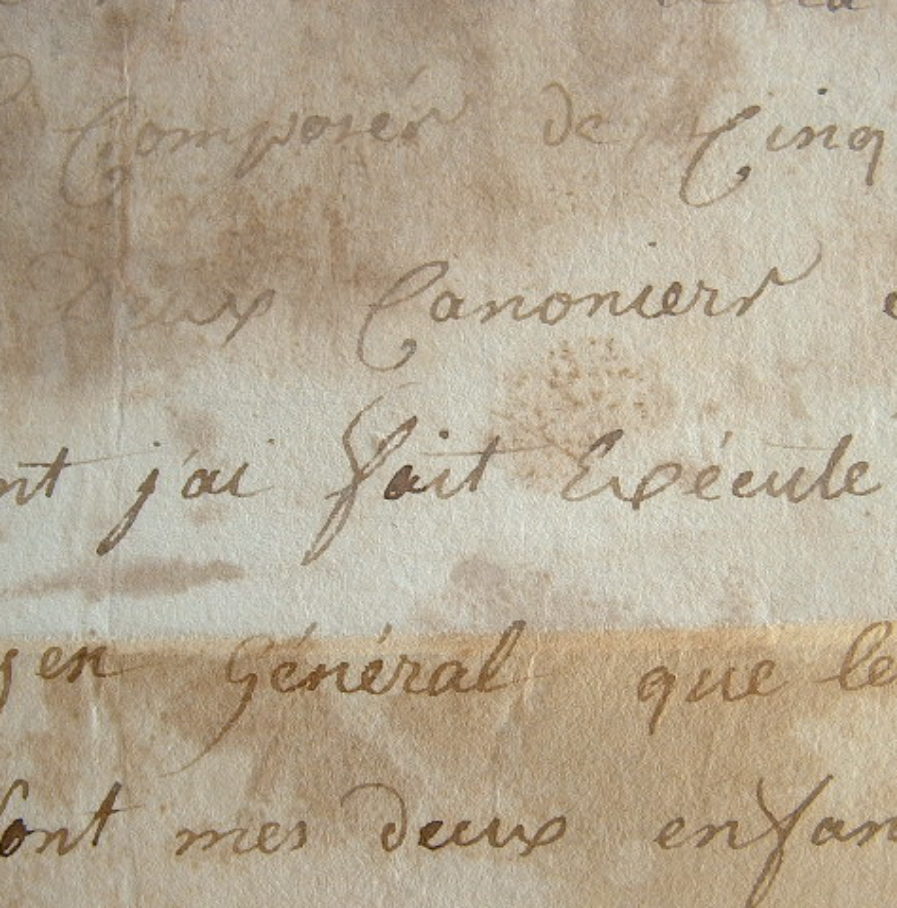 Composér de Cinq
deux Canoniers
nt j'ai fait Exécuté
yen Général que le
sont mes deux enfan